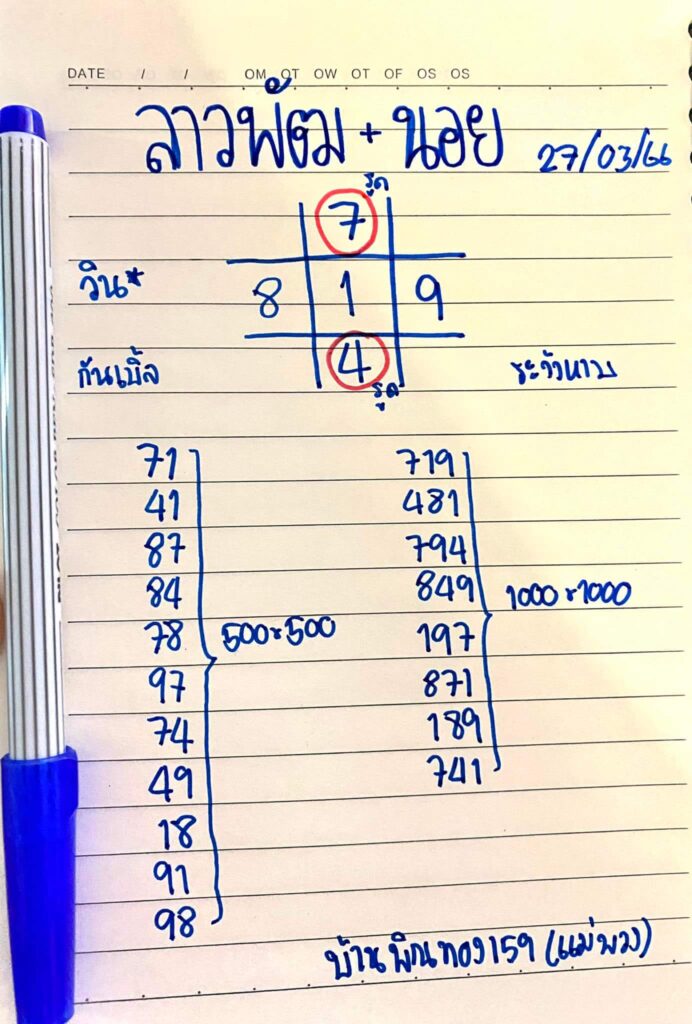 DATE / / OM OT OW OT OF OS OS
ลาวพัฒม + นอย 27/03/66
รูด
7
วิน* 8 1 9
4
รูด
กันเบิ้ล ระวังหาม
71 719
41 481
87 794
84 849
78 500×500 197 1000×1000
97 871
74 189
49 741
18
91
98
บ้านพิณทอง159 (แม่พวง)